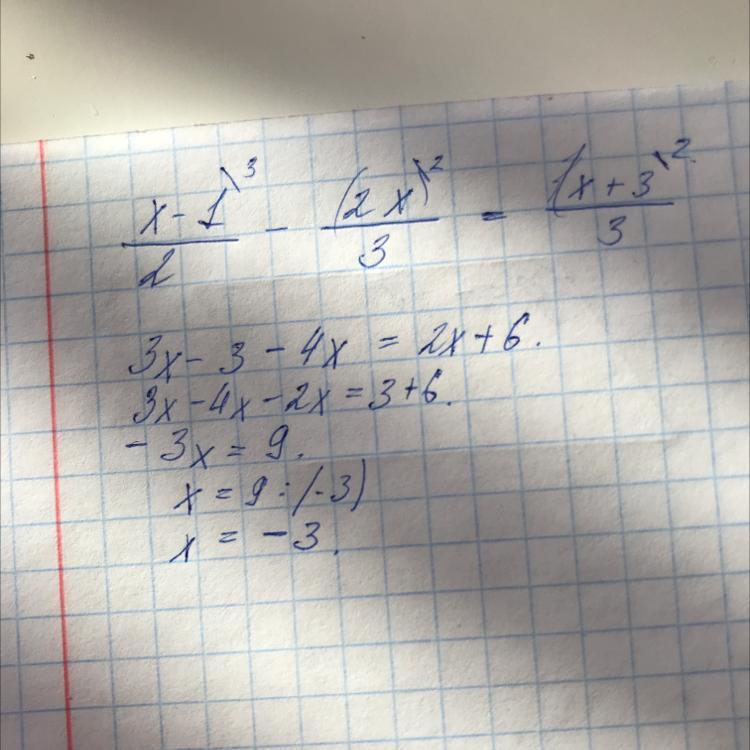 (x-1)/2 \3 - (2x)/3 \2 = (x+3)/3 \2
3x - 3 - 4x = 2x + 6.
3x - 4x - 2x = 3 + 6.
- 3x = 9.
x = 9 : (-3)
x = -3.